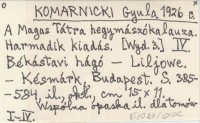 KOMARNICKI Gyula 1926 a.
A Magas Tátra hegymászókalauza.
Harmadik kiadás. [Wyd. 3.] IV.
Békástavi hágó – Liljowe.
- Késmárk, Budapest. S. 385-
-584, il., okł., cm 15 × 11.
Wspólna opaska il. dla tomów
I-IV.